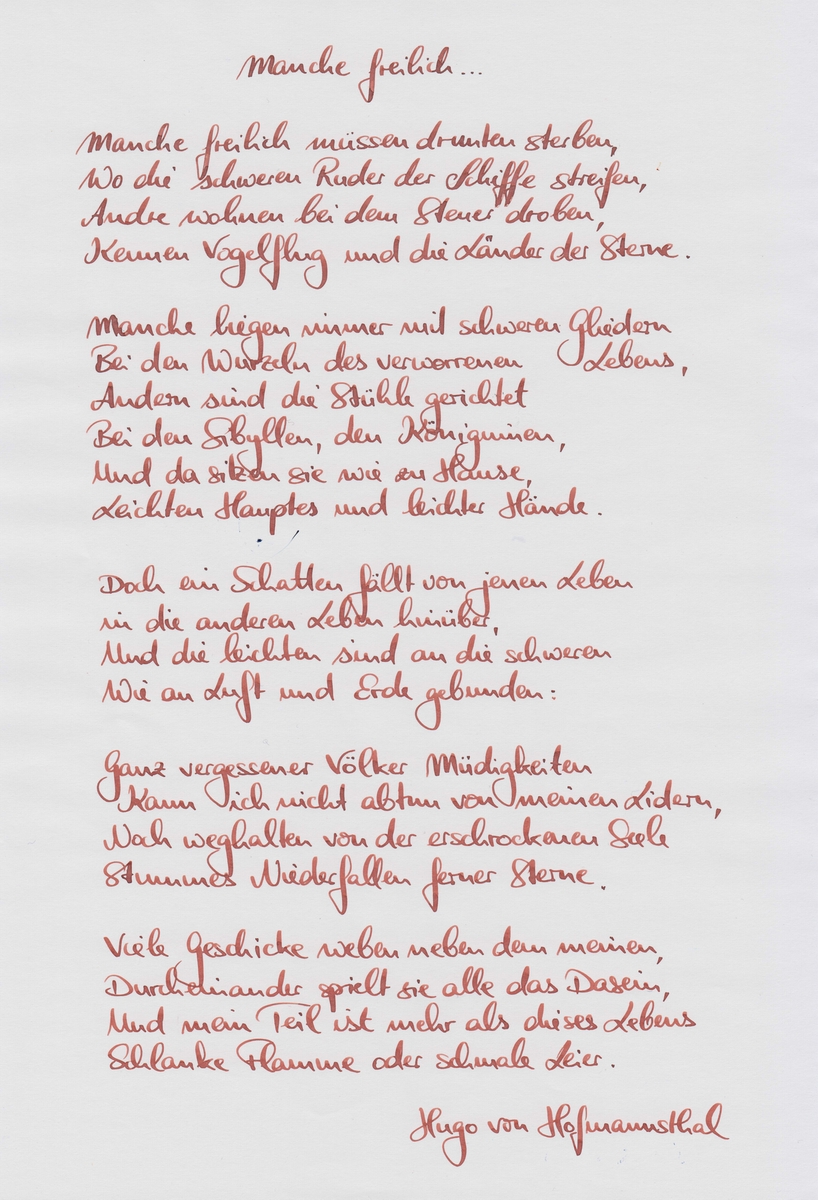 Manche freilich...
Manche freilich müssen drunten sterben,
Wo die schweren Ruder der Schiffe streifen,
Andre wohnen bei dem Steuer droben,
Kennen Vogelflug und die Länder der Sterne.
Manche liegen immer mit schweren Gliedern
Bei den Wurzeln des verworrenen Lebens,
Andern sind die Stühle gerichtet
Bei den Sibyllen, den Königinnen,
Und da sitzen sie wie zu Hause,
Leichten Hauptes und leichter Hände.
Doch ein Schatten fällt von jenen Leben
in die anderen Leben hinüber,
Und die leichten sind an die schweren
Wie an Luft und Erde gebunden:
Ganz vergessener Völker Müdigkeiten
Kann ich nicht abtun von meinen Lidern,
Noch weghalten von der erschrockenen Seele
Stummes Niederfallen ferner Sterne.
Viele Geschicke weben neben dem meinen,
Durcheinander spielt sie alle das Dasein,
Und mein Teil ist mehr als dieses Lebens
Schlanke Flamme oder schmale Leier.
Hugo von Hofmannsthal